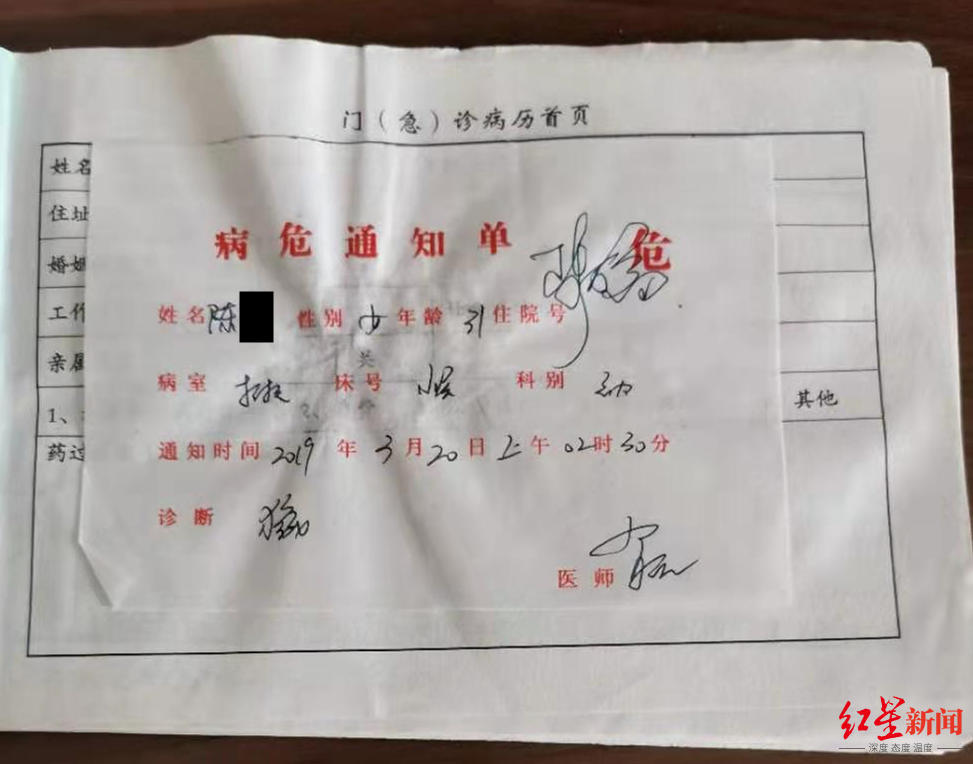 门（急）诊病历首页
姓名
住址
婚姻
工作
亲属
1、
药过
其他
病危通知单 危
姓名 陈 性别 女 年龄 31 住院号
病室 抢救 床号 科别
通知时间 2019 年 3 月 20 日 上午 02 时 30 分
诊断
医师
红星新闻
深度 态度 温度